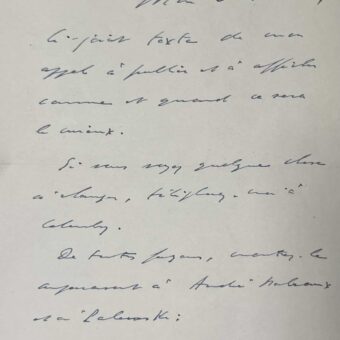 Ci-joint texte de mon
appel à publier et à afficher
comme et quand ce sera
le mieux.
Si vous voyez quelque chose
à changer, téléphonez-moi à
Colombey.
De toutes façons, montrez-le
auparavant à André Malraux
et à Palewski.